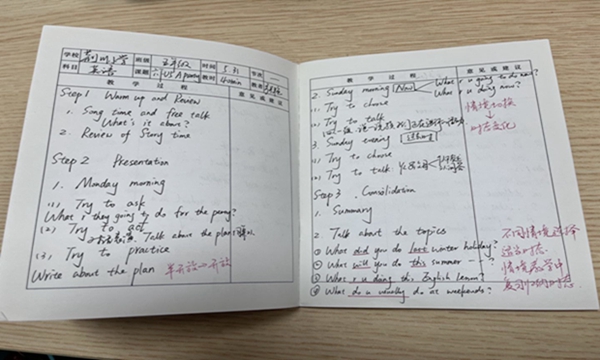 学校
班级
时间 5.31
节次 一
科目 英语
课题 U8 A party
教时 40min
教师
教 学 过 程
意见或建议
Step 1 Warm up and Review
1. Song time and free talk
What's it about?
2. Review of Story time
Step 2 Presentation
1. Monday morning
(1) Try to ask
What r they going to do for the party?
(2) Try to act
Talk about the plan
(3) Try to practice
Write about the plan 半开放→开放
教 学 过 程
意见或建议
2. Sunday morning Now
What r u going to do now?
What r u doing now?
(1) Try to choose
(2) Try to talk
情境切换
↓
时态变化
3. Sunday evening
(1) Try to choose
(2) Try to talk:
Step 3 Consolidation
1. Summary
2 Talk about the topics
① What did you do last winter holiday?
② What will you do this summer ---?
③ What r u doing this English lesson?
④ What do u usually do at weekends?
不同情境选择
适当时态
情境教学中